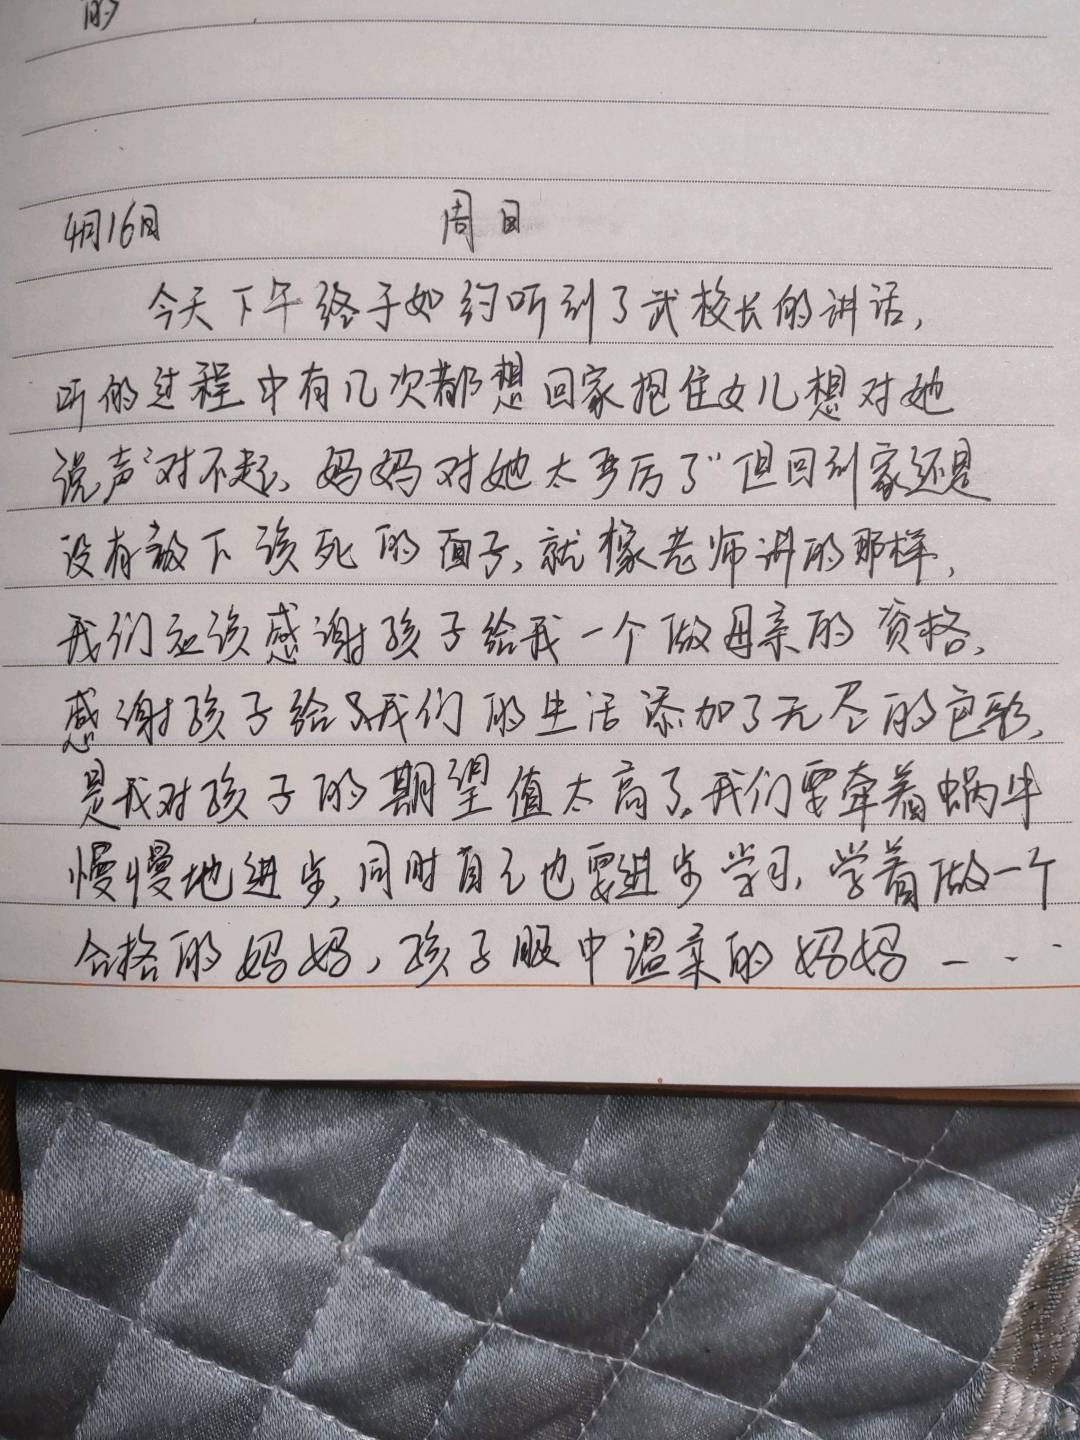 的
4月16日 周日
今天下午终于如约听到了武校长的讲话,
听的过程中有几次都想回家抱住女儿想对她
说声"对不起、妈妈对她太严厉了"但回到家还是
没有放下该死的面子,就像老师讲的那样,
我们应该感谢孩子给我一个做母亲的资格,
感谢孩子给我们的生活添加了无尽的色彩,
是我对孩子的期望值太高了。我们要牵着蜗牛
慢慢地进步,同时自己也要进步学习,学着做一个
合格的妈妈,孩子眼中温柔的妈妈----